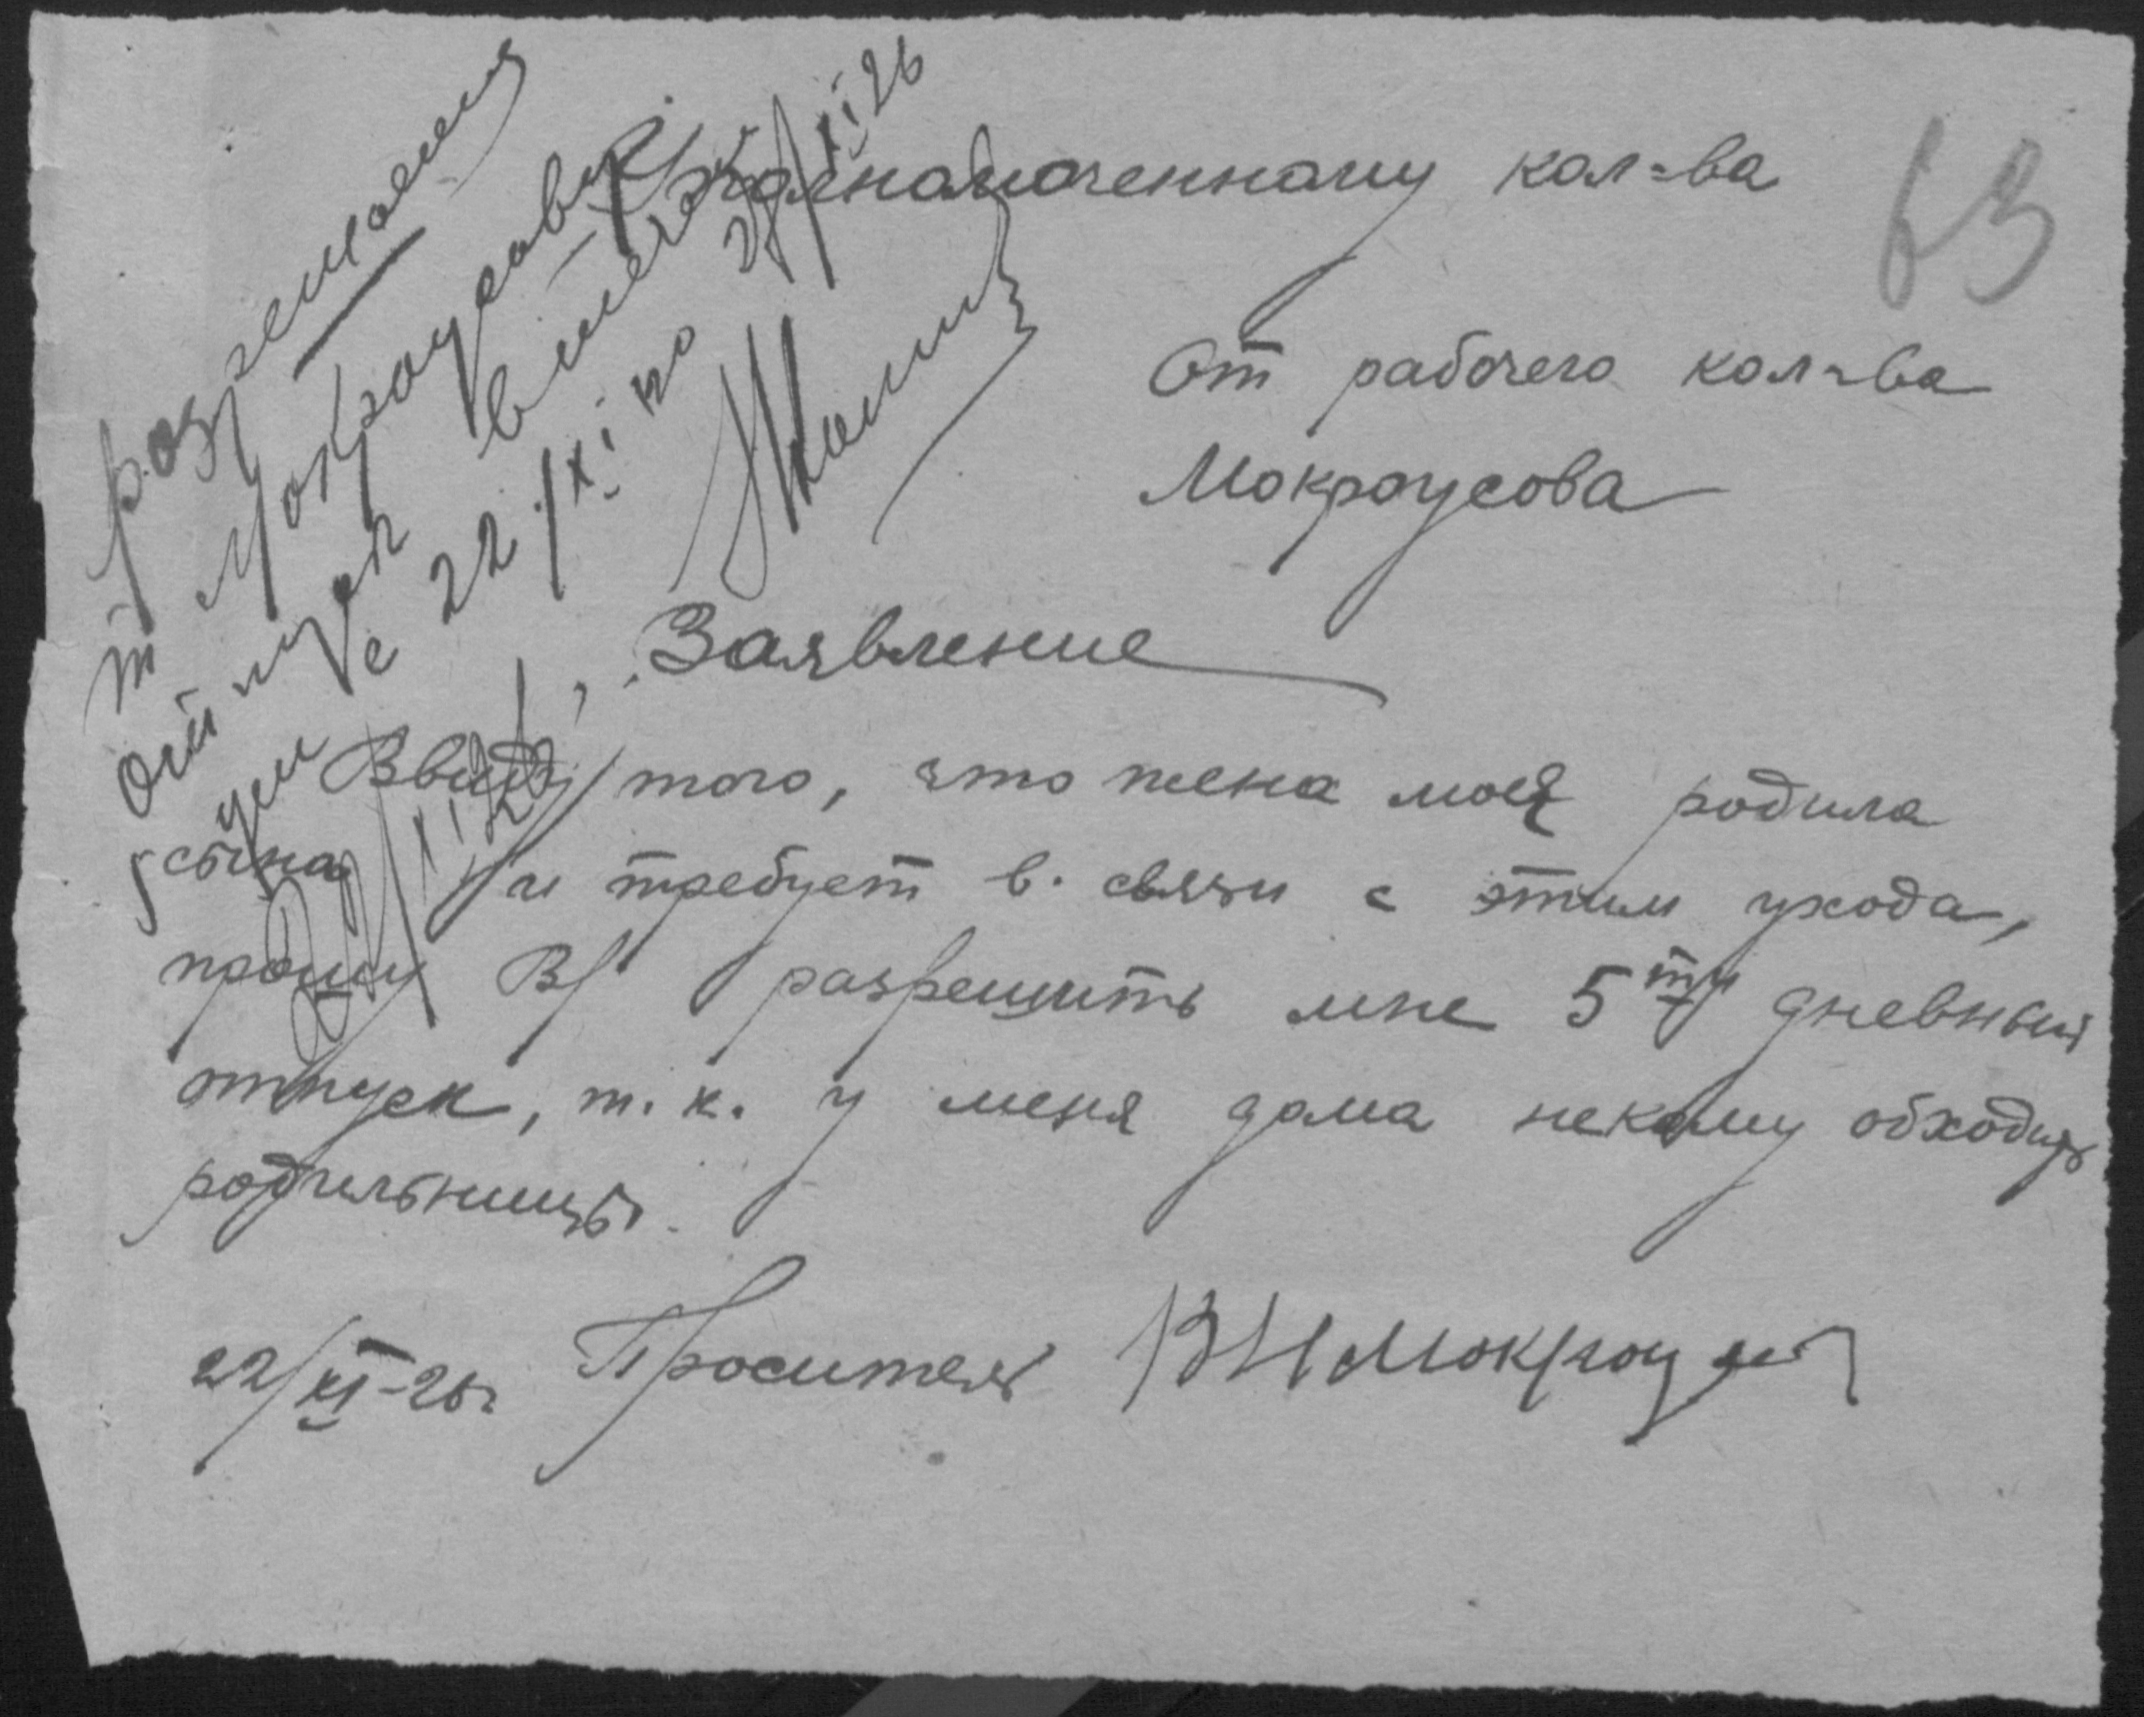 63
Уполномоченному кол-ва
От рабочего кол-ва
Мокроусова
Заявление
Ввиду того, что жена моя родила
сына и требует в. связи с этим ухода,
прошу Вс разрешить мне 5ти дневный
отпуск, т. к. у меня дома некому обходить
родильницы.
22/XI-26г. Проситель ВИМокроус
разрешается
т Мокроусову
отпуск
с 22/XI по 27/XI 26